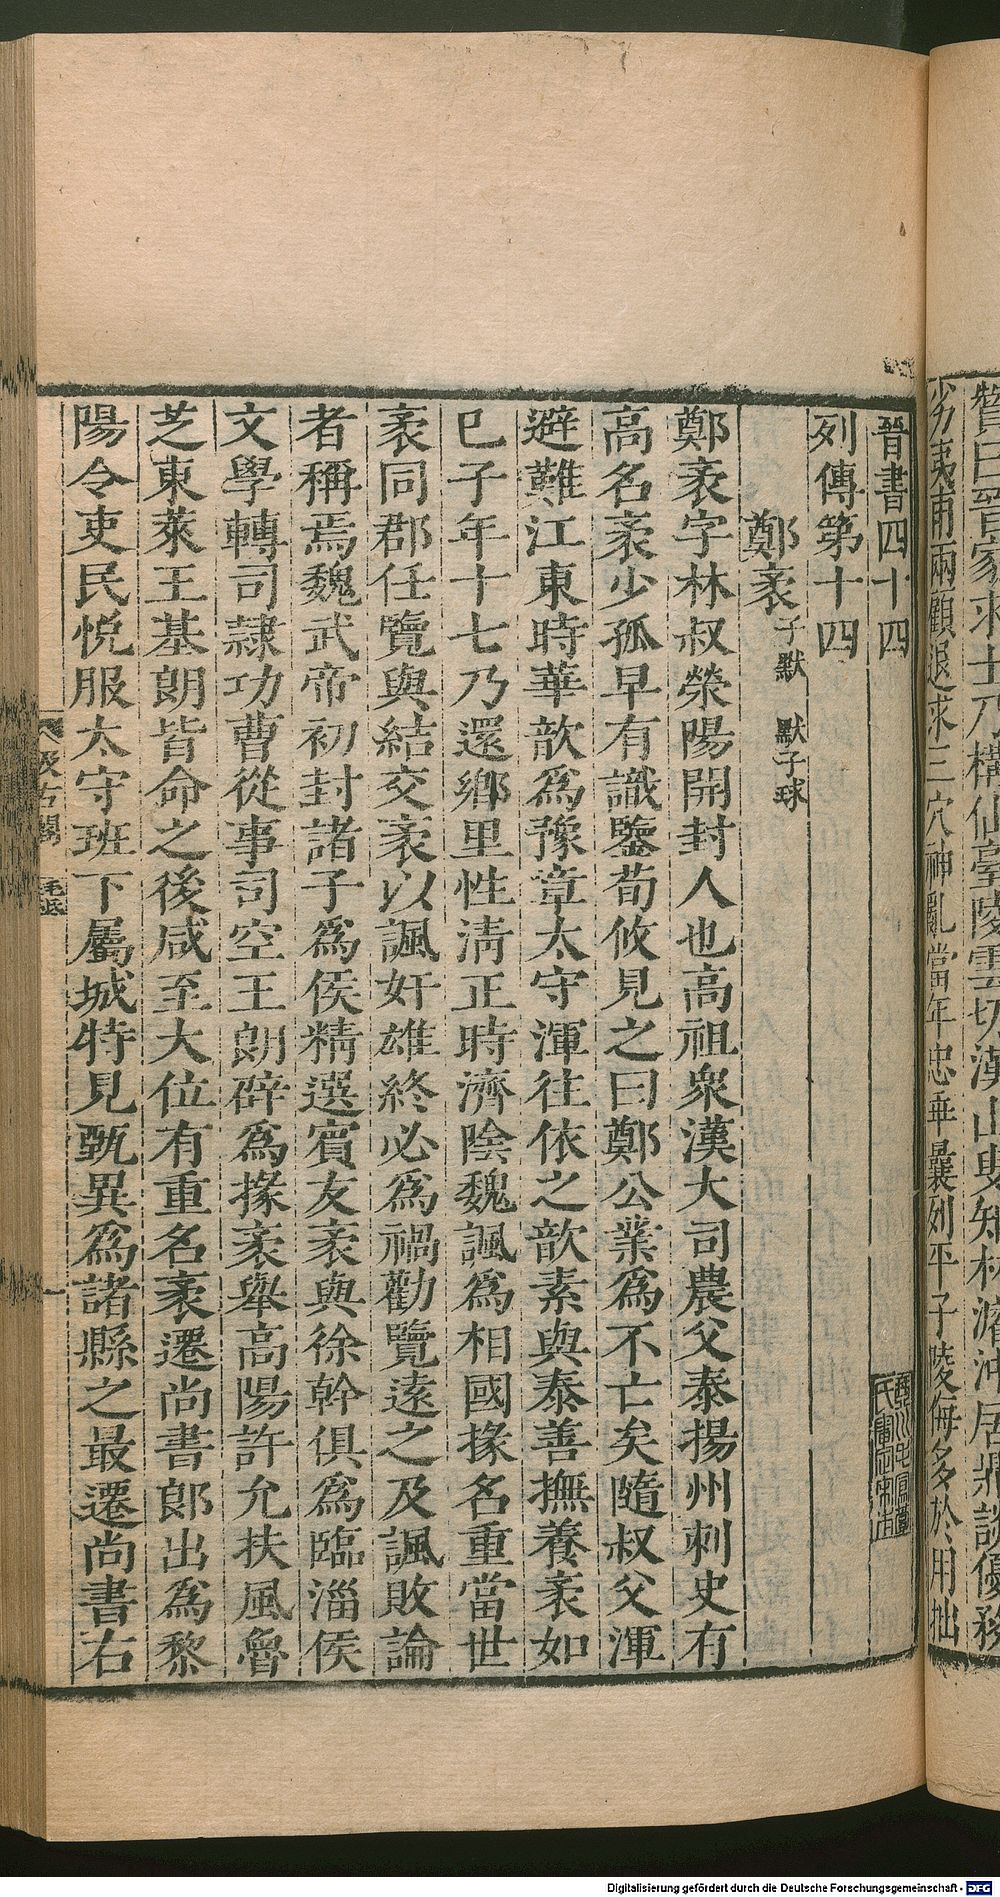 贊曰晉家求士乃構仙臺陵雲切漢山叟知材濬沖居鼎談優務
劣夷甫兩顧退求三穴神亂當年忠乖曩列平子陵侮多於用拙
晉書四十四
列傳第十四
鄭袤 子默 默子球
鄭袤字林叔滎陽開封人也高祖衆漢大司農父泰揚州刺史有
高名袤少孤早有識鑒荀攸見之曰鄭公業爲不亡矣隨叔父渾
避難江東時華歆爲豫章太守渾往依之歆素與泰善撫養袤如
巳子年十七乃還鄉里性清正時濟陰魏諷爲相國掾名重當世
袤同郡任覽與結交袤以諷奸雄終必爲禍勸覽遠之及諷敗論
者稱焉魏武帝初封諸子爲侯精選賓友袤與徐幹俱爲臨淄侯
文學轉司隷功曹從事司空王朗辟爲掾袤舉高陽許允扶風魯
芝東萊王基朗皆命之後咸至大位有重名袤遷尚書郎出爲黎
陽令吏民悅服太守班下屬城特見甄異爲諸縣之最遷尚書右
汲古閣 毛氏
Digitalisierung gefördert durch die Deutsche Forschungsgemeinschaft - DFG